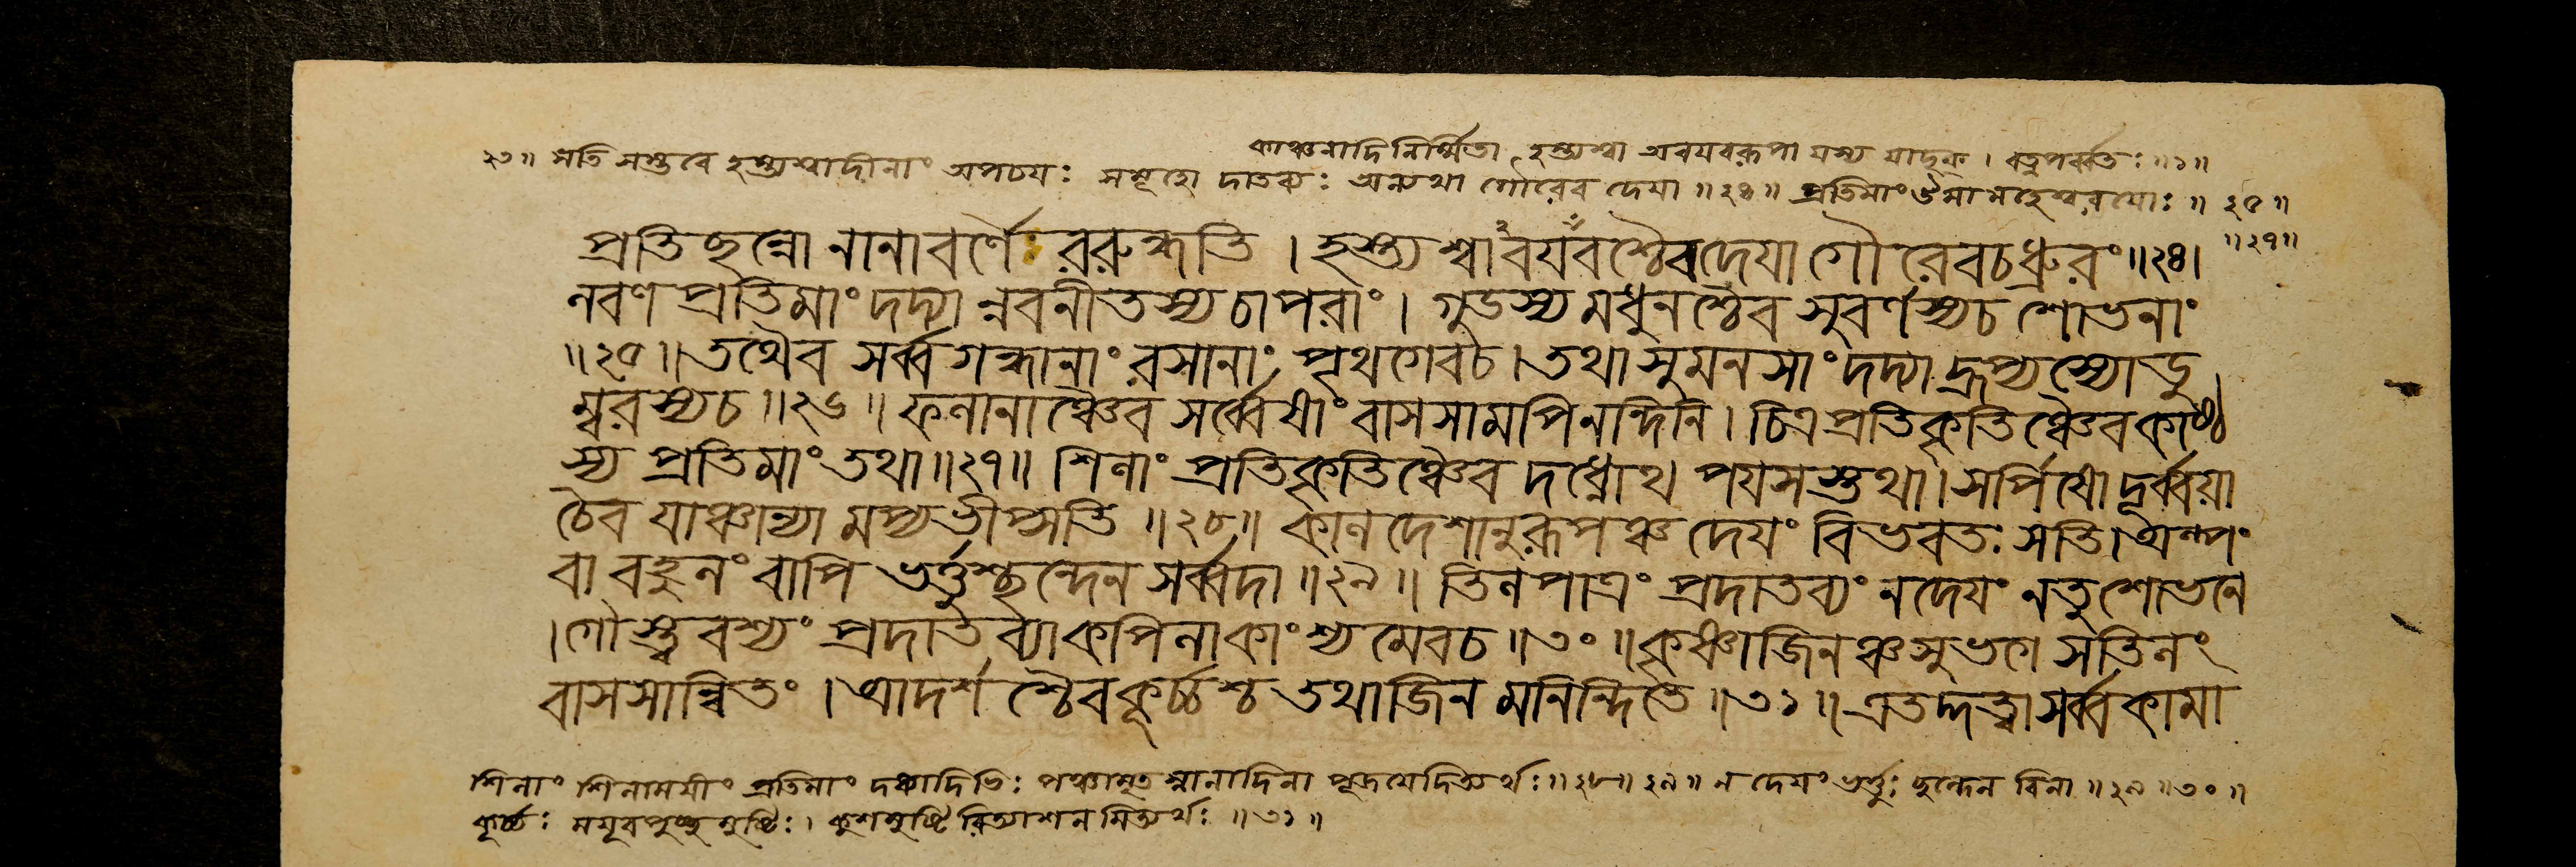 কাঞ্চনাদিনির্ম্মিতা হস্ত্যশ্বা অবয়বরূপা যস্য যাদৃক্। বহুপর্ব্বতঃ॥১॥
২৩॥ সতি সম্ভবে হস্ত্যশ্বাদীনাং অপচয়ঃ সমূহো দাতব্যঃ অন্যথা গৌরেব দেয়া॥২৪॥ প্রতিমাং উমামহেশ্বরয়োঃ॥২৫॥
॥২৭॥
প্রতিছন্নো নানাবর্ণৈঃ ররুন্ধতি। হস্ত্যশ্বাবয়বশ্চৈব দেয়া গৌরেব চ ধ্রুবং॥২৪।
লবণপ্রতিমাং দদ্যান্নবনীতস্য চাপরাং। গুডস্য মধুনশ্চৈব সুবর্ণস্য চ শোভনাং
॥২৫॥ তথৈব সর্ব্বগন্ধানাং রসানাং পৃথগেব চ। তথা সুমনসাং দদ্যাদ্রূপ্যস্যোডু
ম্বরস্য চ॥২৬॥ ফলানাঞ্চৈব সর্ব্বেষাং বাসসামপি নন্দিনি। চিত্রপ্রতিকৃতিঞ্চৈব কাষ্ঠ
স্য প্রতিমাং তথা॥২৭॥ শিলাং প্রতিকৃতিঞ্চৈব দধ্নোথ পয়সস্তথা। সর্পিষো দূর্ব্বয়া
চৈব যাঞ্চান্যামপ্যভীপ্সতি॥২৮॥ কালদেশানুরূপঞ্চ দেয়ং বিভবতঃ সতি। অল্পং
বা বহুলং বাপি ভর্ত্তুশ্ছন্দেন সর্ব্বদা॥২৯॥ তিলপাত্রং প্রদাতব্যং ন দেয়ং নতু শোভনে
। গৌস্ত্ববশ্যং প্রদাতব্যা কপিলা কাংশ্যমেব চ॥৩০॥ কৃষ্ণাজিনঞ্চ সুভগে সতিলং
বাসসান্বিতং। আদর্শশ্চৈব কূর্চ্চশ্চ তথাজিনমনিন্দিতে॥৩১॥ এতদ্দত্ত্বা সর্ব্বকামা
শিলাং শিলাময়ীং প্রতিমাং দধ্যাদিভিঃ পঞ্চামৃতস্নানাদিনা পূজয়েদিত্যর্থঃ॥২৮॥২৯॥ ন দেয়ং ভর্ত্তুঃ ছন্দেন বিনা॥২৯॥৩০॥
কূর্চ্চঃ ময়ূরপুচ্ছমুষ্টিঃ। কুশমুষ্টিরিত্যাশনমিত্যর্থঃ॥৩১॥